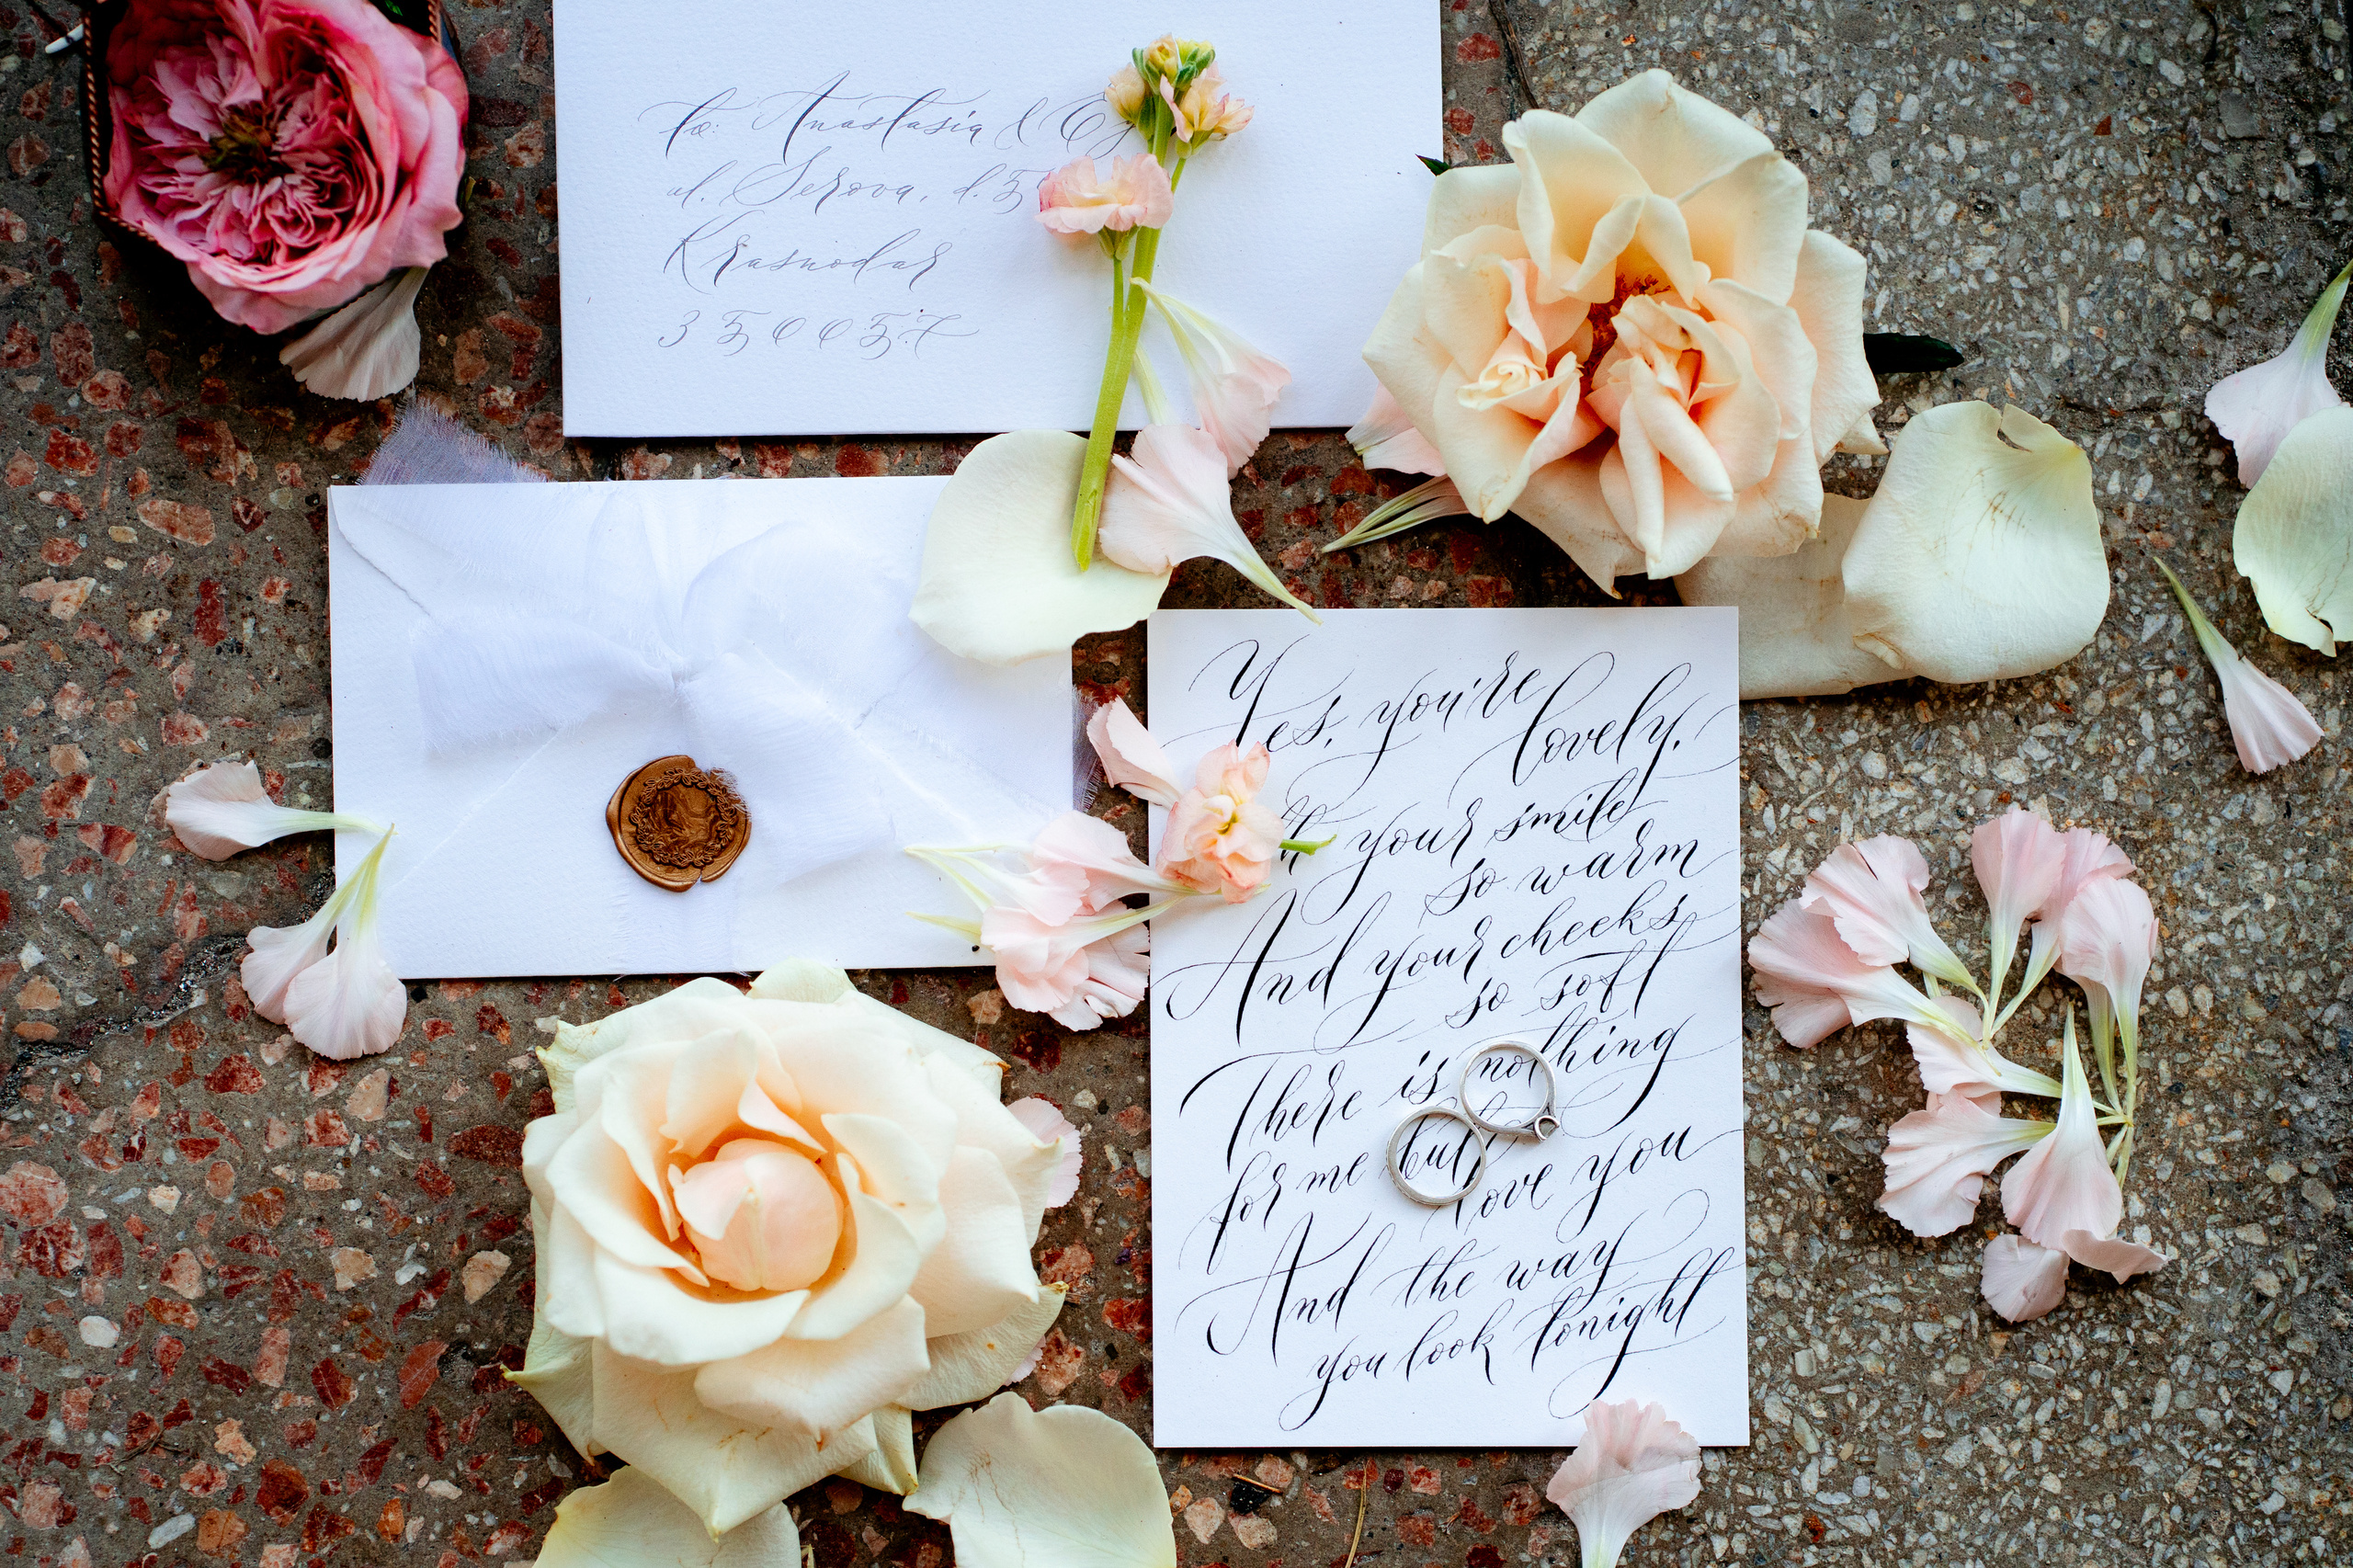 to: Anastasia &
ul. Serova, d.
Krasnodar
350057
Yes, you're
lovely,
your smile
so warm
And your cheeks
so soft
There is nothing
for me but
love you
And the way
you look tonight